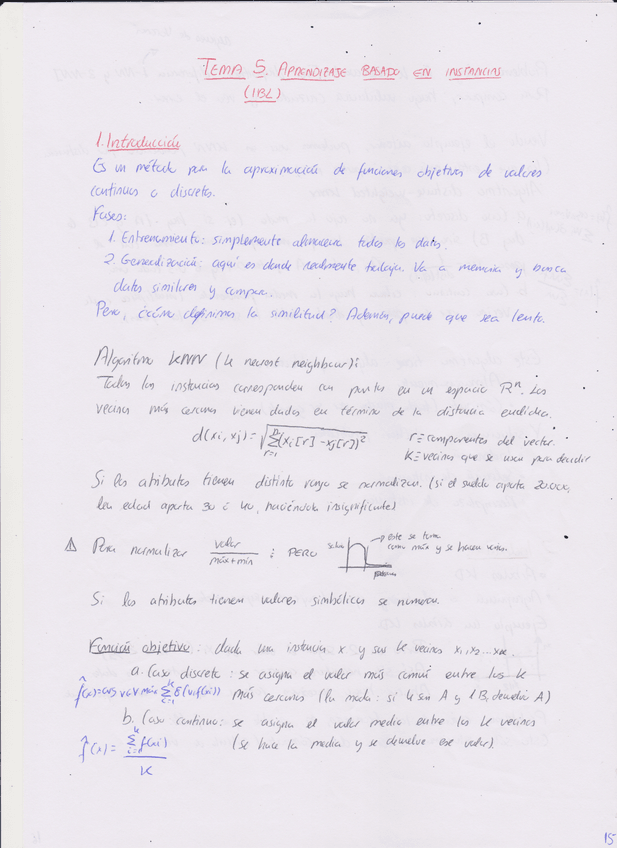 TEMA 5. APRENDIZAJE BASADO EN INSTANCIAS
(IBL)
1. Introducción
Es un método para la aproximación de funciones objetivos de valores
continuos o discretos.
Fases:
1. Entrenamiento: simplemente almacena todos los datos.
2. Generalización: aquí es donde realmente trabaja. Va a memoria y busca
datos similares y compara.
Pero, ¿cómo definimos la similitud? Además, puede que sea lento.
Algoritmo KNN (k nearest neighbour):
Todas las instancias corresponden con puntos en un espacio Rⁿ. Los
vecinos más cercanos vienen dados en término de la distancia euclídea.
d(xi, xj) = √(Σ_{r=1}^{n} (xi[r] - xj[r])²) r ≡ componentes del vector.
K ≡ vecinos que se usan para decidir
Si los atributos tienen distinto rango se normalizan. (si el sueldo aporta 20.000,
la edad aporta 30 ó 40, haciéndola insignificante)
⚠ Para normalizar valor / máx+mín ; PERO sueldo → este se toma
como máx y se hacen varios.
Si los atributos tienen valores simbólicos se numeran.
Función objetivo: dada una instancia x y sus k vecinos x1, x2 ... xk.
a. Caso discreto: se asigna el valor más común entre los k
f̂(x) = arg v∈V máx Σ_{i=1}^{k} δ(v, f(xi)) más cercanos (la moda: si 4 son A y 1 B, devuelve A)
b. Caso continuo: se asigna el valor medio entre los k vecinos
f̂(x) = Σ_{i=1}^{k} f(xi) / K (se hace la media y se devuelve ese valor).
15